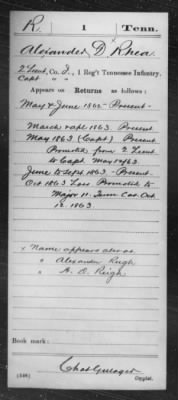 R. 1 Tenn.
Alexander D. Rhea
2 Lieut, Co. I, 1 Reg't Tennessee Infantry.
Capt " "
Appears on Returns as follows:
May & June 1862 - Present
March, 1863. Present
May 1863 (Capt) Present
Promoted from 2 Lieut
to Capt May 10/63
June to Sept 1863 - Present
Oct 1863 Loss Promoted to
Major 11. Tenn Cav. Oct
12. 1863
x Name appears also as
" Alexander Reigh
" A. D. Reigh
Book mark:
(546)
Copyist.